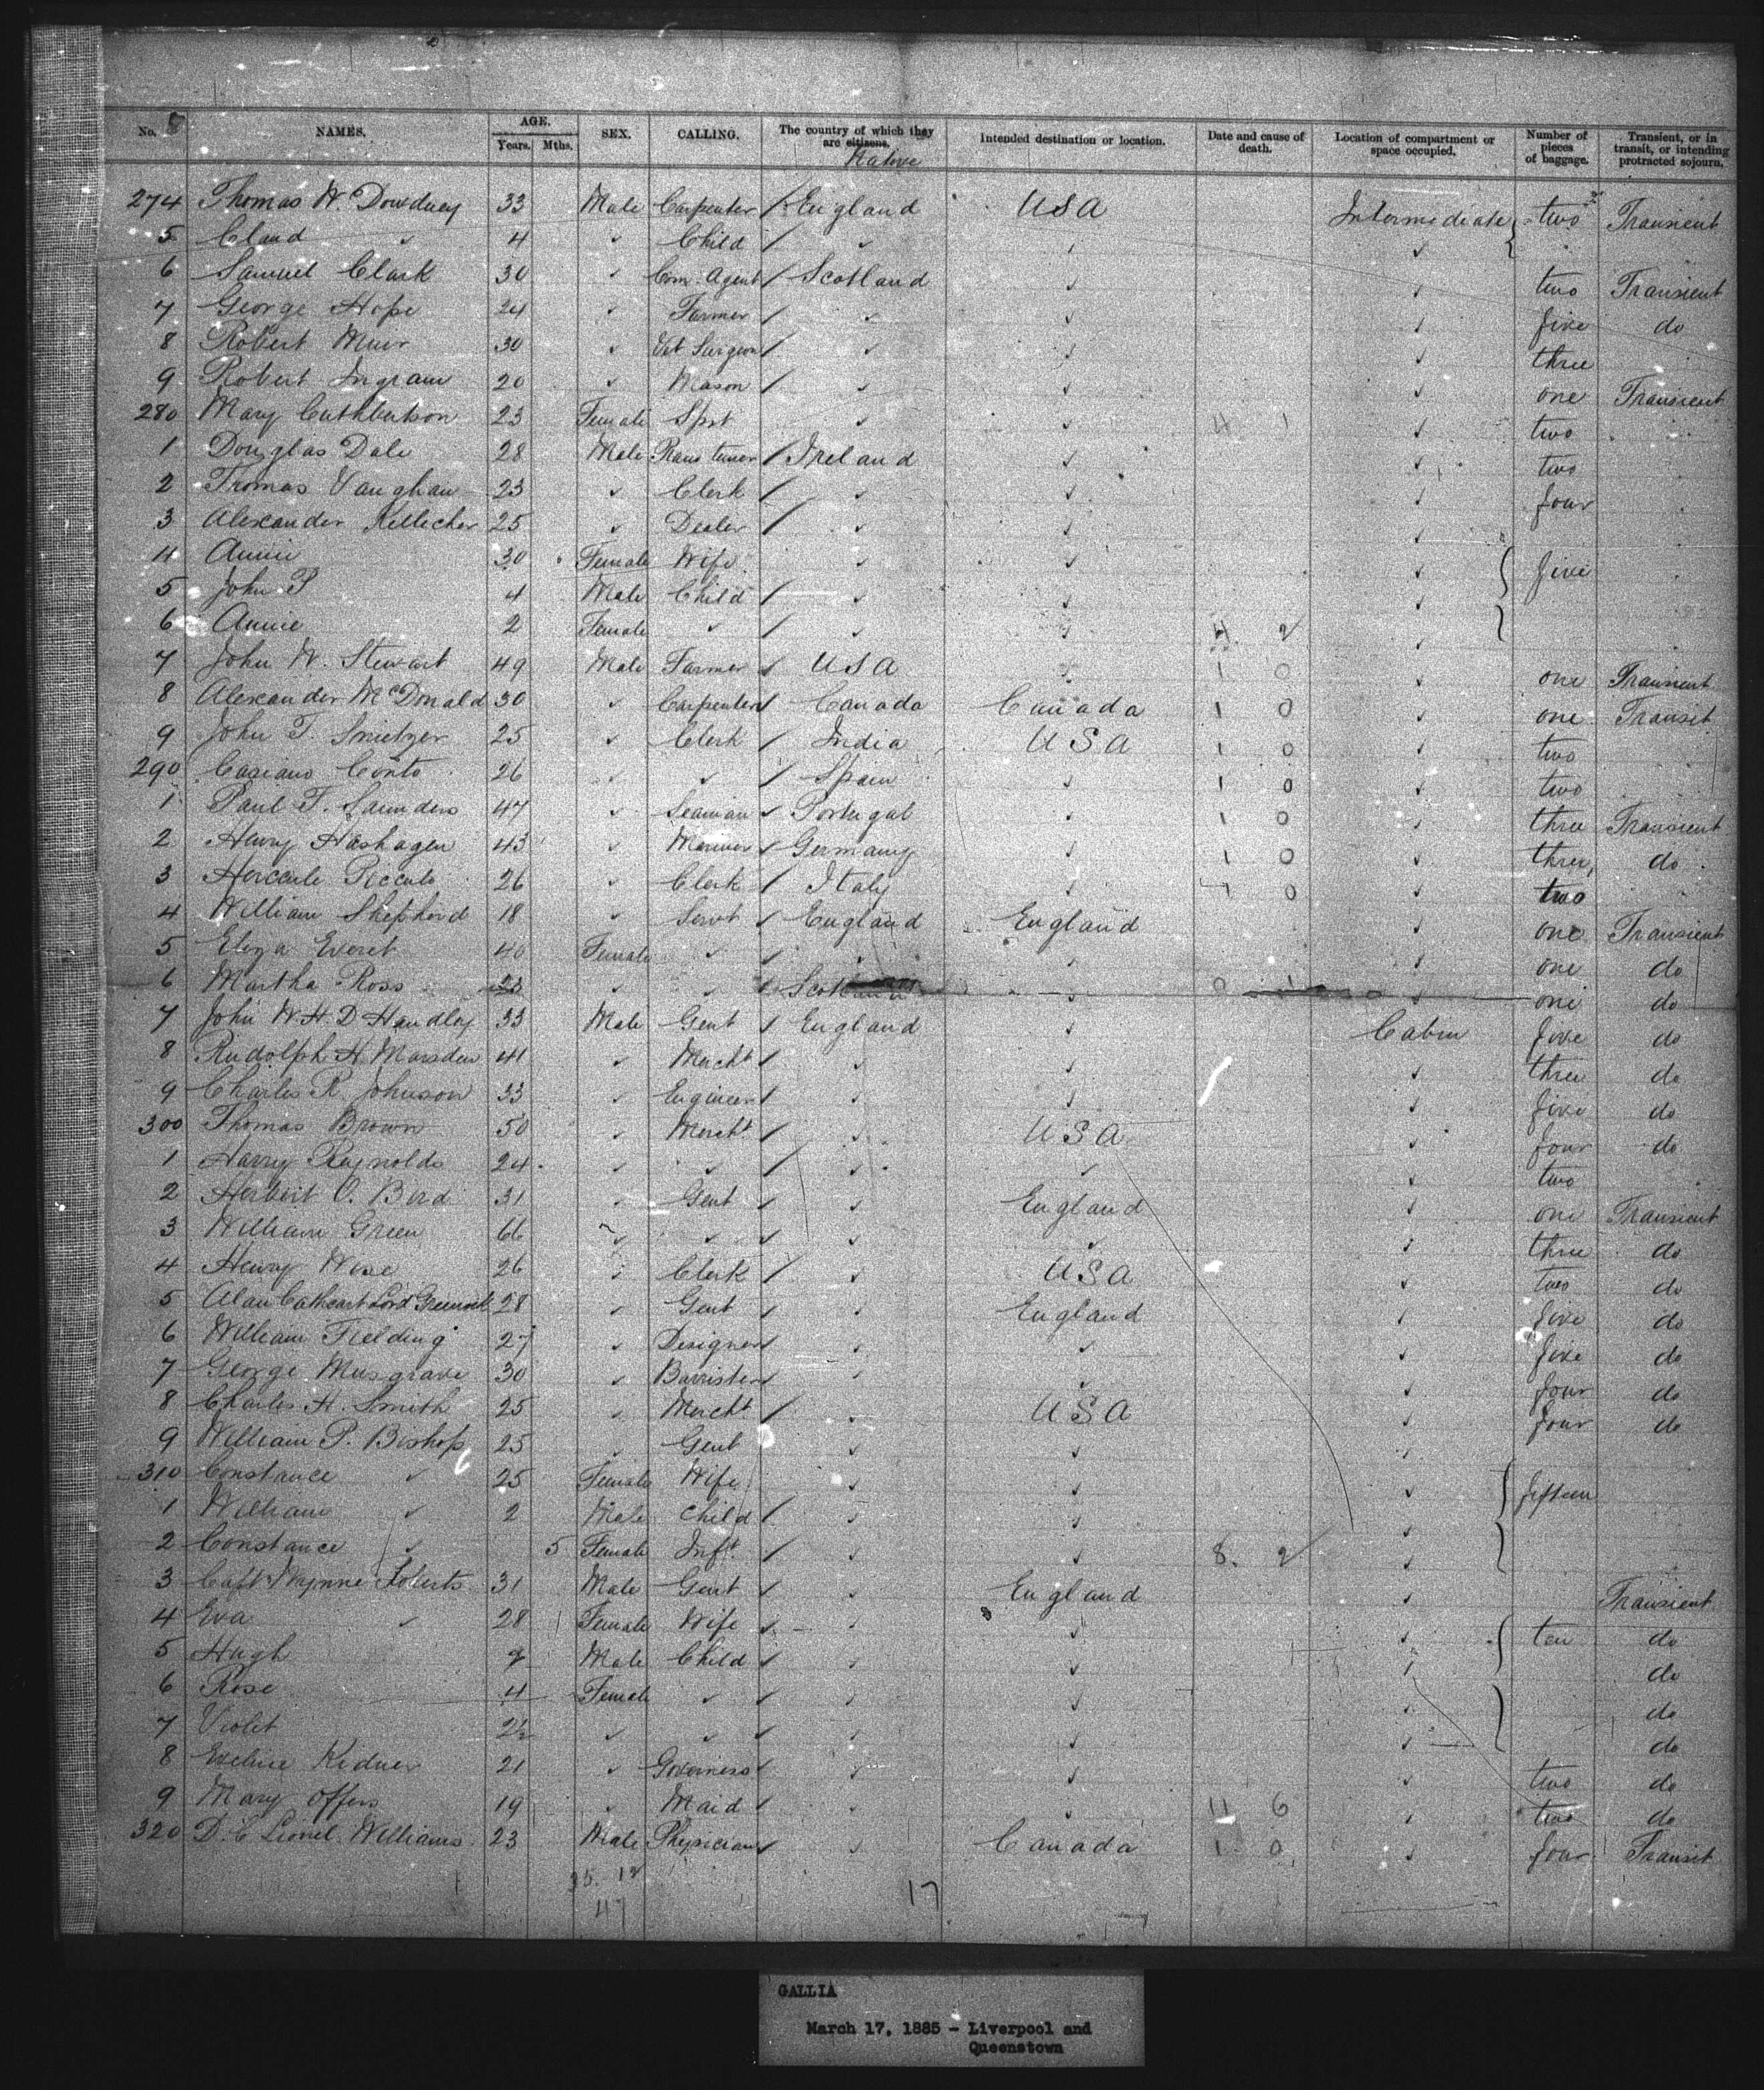 No. NAMES. AGE. Years. Mths. SEX. CALLING. The country of which they are citizens. Native Intended destination or location. Date and cause of death. Location of compartment or space occupied. Number of pieces of baggage. Transient, or in transit, or intending protracted sojourn.
274 Thomas W. Dowdney 33 Male Carpenter / England USA Intermediate { two Transient
5 Claud ✓ 4 ✓ Child / ✓ ✓ ✓
6 Samuel Clark 30 ✓ Com. Agent / Scotland ✓ ✓ two Transient
7 George Hope 24 ✓ Farmer / ✓ ✓ ✓ five do
8 Robert Muir 30 ✓ Vet Surgeon / ✓ ✓ ✓ three
9 Robert Ingram 20 ✓ Mason / ✓ ✓ ✓ one Transient
280 Mary Cuthbertson 23 Female Spst ✓ ✓ 4 1 ✓ two
1 Douglas Dale 28 Male / Ireland ✓ ✓ two
2 Thomas Vaughan 23 ✓ Clerk / ✓ ✓ ✓ four
3 Alexander Kellecher 25 ✓ Dealer / ✓ ✓ ✓
4 Annie 30 Female Wife ✓ ✓ ✓ five
5 John P 4 Male Child / ✓ ✓ ✓
6 Annie 2 Female ✓ / ✓ ✓ 4 2 ✓
7 John W. Stewart 49 Male Farmer ✓ USA ✓ 1 0 ✓ one Transient
8 Alexander McDonald 30 ✓ Carpenter / Canada Canada 1 0 ✓ one Transit
9 John T. Smetzer 25 ✓ Clerk / India USA 1 0 ✓ two
290 Casiano Conto 26 ✓ ✓ / Spain ✓ 1 0 ✓ two
1 Paul T. Saunders 47 ✓ Seaman ✓ Portugal ✓ 1 0 ✓ three Transient
2 Henry Hashagen 43 ✓ Mariner ✓ Germany ✓ 1 0 ✓ three do
3 Hercule Piccolo 26 ✓ Clerk / Italy ✓ 7 0 ✓ two
4 William Shepherd 18 ✓ Servt ✓ England England ✓ one Transient
5 Eliza Everet 40 Female ✓ ✓ ✓ ✓ ✓ one do
6 Martha Ross 23 ✓ ✓ ✓ Scotland ✓ 0 1 ✓ one do
7 John W. H. D Handley 33 Male Gent ✓ England ✓ Cabin five do
8 Rudolph H. Marsden 41 ✓ Mercht / ✓ ✓ ✓ three do
9 Charles R. Johnson 33 ✓ Engineer / ✓ ✓ ✓ five do
300 Thomas Brown 50 ✓ Mercht / ✓ USA ✓ four do
1 Harry Reynolds 24 ✓ ✓ / ✓ ✓ ✓ two
2 Herbert O. Bird 31 ✓ Gent ✓ ✓ England ✓ one Transient
3 William Green 66 ✓ ✓ ✓ ✓ ✓ ✓ three do
4 Henry Wise 26 ✓ Clerk / ✓ USA ✓ two do
5 Alan Cathcart Lord Greenock 28 ✓ Gent ✓ ✓ England ✓ five do
6 William Fielding 27 ✓ Designer ✓ ✓ ✓ ✓ five do
7 George Musgrave 30 ✓ Barrister ✓ ✓ ✓ ✓ four do
8 Charles H. Smith 25 ✓ Mercht / ✓ USA ✓ four do
9 William P. Bishop 25 ✓ Gent ✓ ✓ ✓
310 Constance ✓ 25 Female Wife ✓ ✓ ✓ fifteen
1 William ✓ 2 Male Child / ✓ ✓ ✓
2 Constance ✓ 5 Female Inft / ✓ ✓ 8. 2 ✓
3 Capt Wynne Roberts 31 Male Gent ✓ ✓ England ✓ Transient
4 Eva ✓ 28 Female Wife ✓ ✓ ✓ ✓ ten do
5 Hugh Male Child ✓ ✓ ✓ ✓ do
6 Rose 4 Female ✓ ✓ ✓ ✓ ✓ do
7 Violet 2½ ✓ ✓ ✓ ✓ ✓ do
8 Eveline Kidner 21 ✓ Governess ✓ ✓ ✓ ✓ two do
9 Mary Offers 19 ✓ Maid ✓ ✓ ✓ 11 6 ✓ two do
320 D. C Lionel Williams 23 Male Physician ✓ ✓ Canada 1 0 ✓ four Transit
35. 12
47 17
GALLIA
March 17, 1885 - Liverpool and
Queenstown